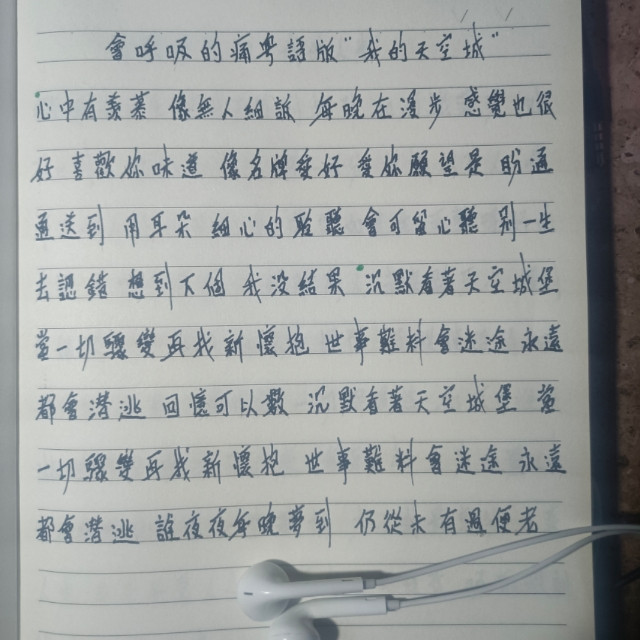 會呼吸的痛粵語版"我的天空城"
心中有羨慕 像無人細訴 每晚在漫步 感覺也很
好 喜歡你味道 像名牌愛好 愛你願望是 盼通
通送到 用耳朵 細心的聆聽 會可留心聽 别一生
去認錯 想到下個 我没結果 沉默看著天空城堡
當一切驟變再找新懷抱 世事難料會迷途 永遠
都會潛逃 回憶可以數 沉默看著天空城堡 當
一切驟變再找新懷抱 世事難料會迷途 永遠
都會潛逃 誰夜夜每晚夢到 仍從未有過便者